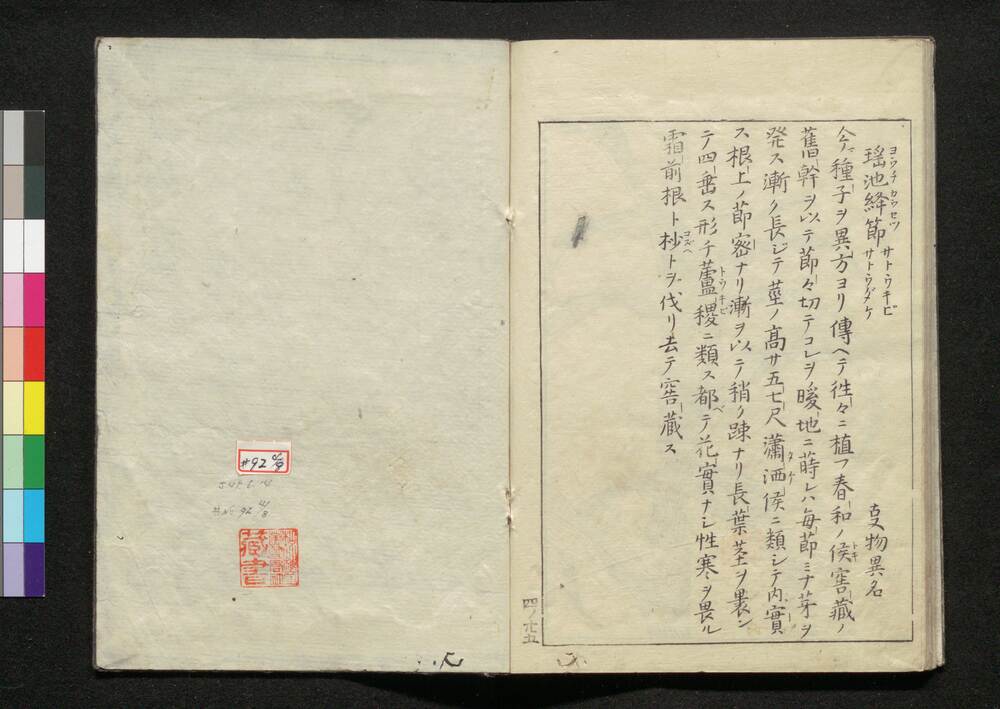 瑶池絳節 サトウキビ サトウダケ 事物異名
ヨウチカウセツ
今ノ種子ヲ異方ヨリ傳ヘテ徃々ニ植フ春和ノ候窖藏ノ
トキ
舊幹ヲ以テ節々切テコレヲ暖地ニ蒔レハ毎節ミナ芽ヲ
発ス漸ク長ジテ莖ノ高サ五七尺瀟洒タケニ類シテ内實
ス根上ノ節密ナリ漸ヲ以テ稍ク踈ナリ長葉茎ヲ裹ン
テ四垂ス形チ蘆稷ニ類ス都テ花實ナシ性寒ヲ畏ル
トウキビ
ベ
霜前根ト杪トヲ伐リ去テ窖藏ス
コズヘ
四ノ廿五
#92